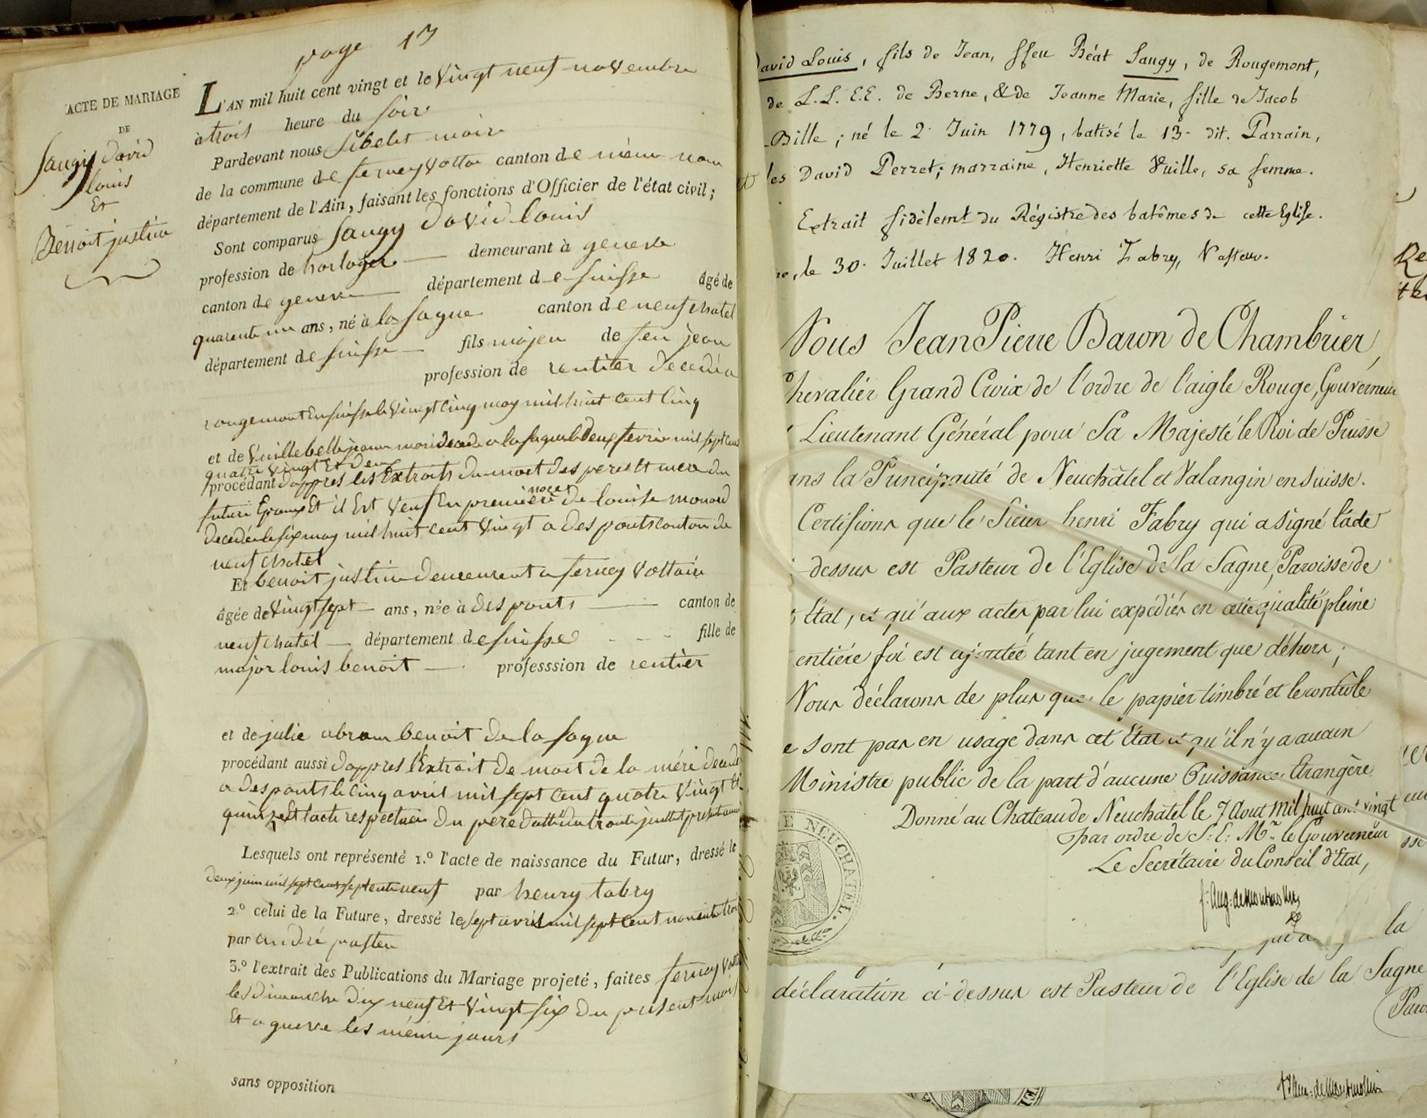 page 17
ACTE DE MARIAGE
DE
Saugy david
louis
Et
Benoit justine
L'AN mil huit cent vingt et le Vingt neuf novembre
à trois heure du soir
Pardevant nous Sibelet maire
de la commune de ferney Voltaire canton de même nom
département de l'Ain, faisant les fonctions d'Officier de l'état civil;
Sont comparus Saugy David louis
profession de horloger demeurant à geneve
canton de geneve département de suisse âgé de
quarente un ans, né à la sagne canton de neufchatel
département de suisse fils majeu de feu jean
profession de rentier decedé a
rougemont En suisse le Vingt cinq may mil huit cent cinq
et de Vuille belle jeanne marie decedé a la sagne le Deux fevrie mil sept cent
quatre vingt Et deux
procédant d'appres les Extraits de mort des peres Et mere du
futur Et il Est Veuf En premiere noces de louise monard
decedée le six may mil huit cent vingt a des ponts canton de
neufchatel
Et benoit justine demeurent a ferney Voltaire
âgée de Vingt sept ans, née à des ponts canton de
neufchatel département de suisse fille de
major louis benoit professsion de rentier
et de julie abram benoit de la sagne
procédant aussi d'appres l'Extrait de mort de la mère decedé
a des ponts le cinq avril mil sept cent quatre Vingt Et
quinze Et l'acte respectueu du pere datté du trente juillet
Lesquels ont représenté 1.º l'acte de naissance du Futur, dressé le
deux juin mil sept cent septente neuf par henry tabry
2.º celui de la Future, dressé le sept avril mil sept cent nonente trois
par andré pasteu
3.º l'extrait des Publications du Mariage projeté, faites ferney Vol
les Dimanche dix neuf Et Vingt six du présent mois
Et a geneve les même jours
sans opposition
David Louis, fils de Jean, ffeu Béat Saugy, de Rougemont,
de L.L.E.E. de Berne, & de Jeanne Marie, fille de Jacob
Vuille; né le 2. Juin 1779, batisé le 13. dit. Parrain,
les David Perret; marraine, Henriette Vuille, sa femme.
Extrait fidèlemt du Régistre des batêmes de cette Eglise.
, le 30. Juillet 1820. Henri Fabry, Pasteur.
Nous Jean Pierre Baron de Chambrier,
Chevalier Grand Croix de l'ordre de l'aigle Rouge, Gouverneur
Lieutenant Général pour Sa Majesté le Roi de Prusse
ans la Principauté de Neuchâtel et Valangin en Suisse.
Certifions que le Sieur henri Fabry qui a signé l'acte
dessus est Pasteur de l'Eglise de la Sagne, Paroisse de
Etat, et qu'aux actes par lui expédiés en cette qualité pleine
entière foi est ajoutée tant en jugement que déhors;
Nous déclarons de plus que le papier timbré et le contrôle
e sont pas en usage dans cet Etat et qu'il n'y a aucun
Ministre public de la part d'aucune Puissance Etrangère
Donné au Chateau de Neuchâtel le 7 Aout mil huit cent vingt
par ordre de S: E: Mr. le Gouverneur
Le Secrétaire du Conseil d'Etat,
f: Aug: de Montmollin
NEUCHATEL.
la
déclaration ci-dessus est Pasteur de l'Eglise de la Sagne
(Paro
f: Aug: de Montmollin